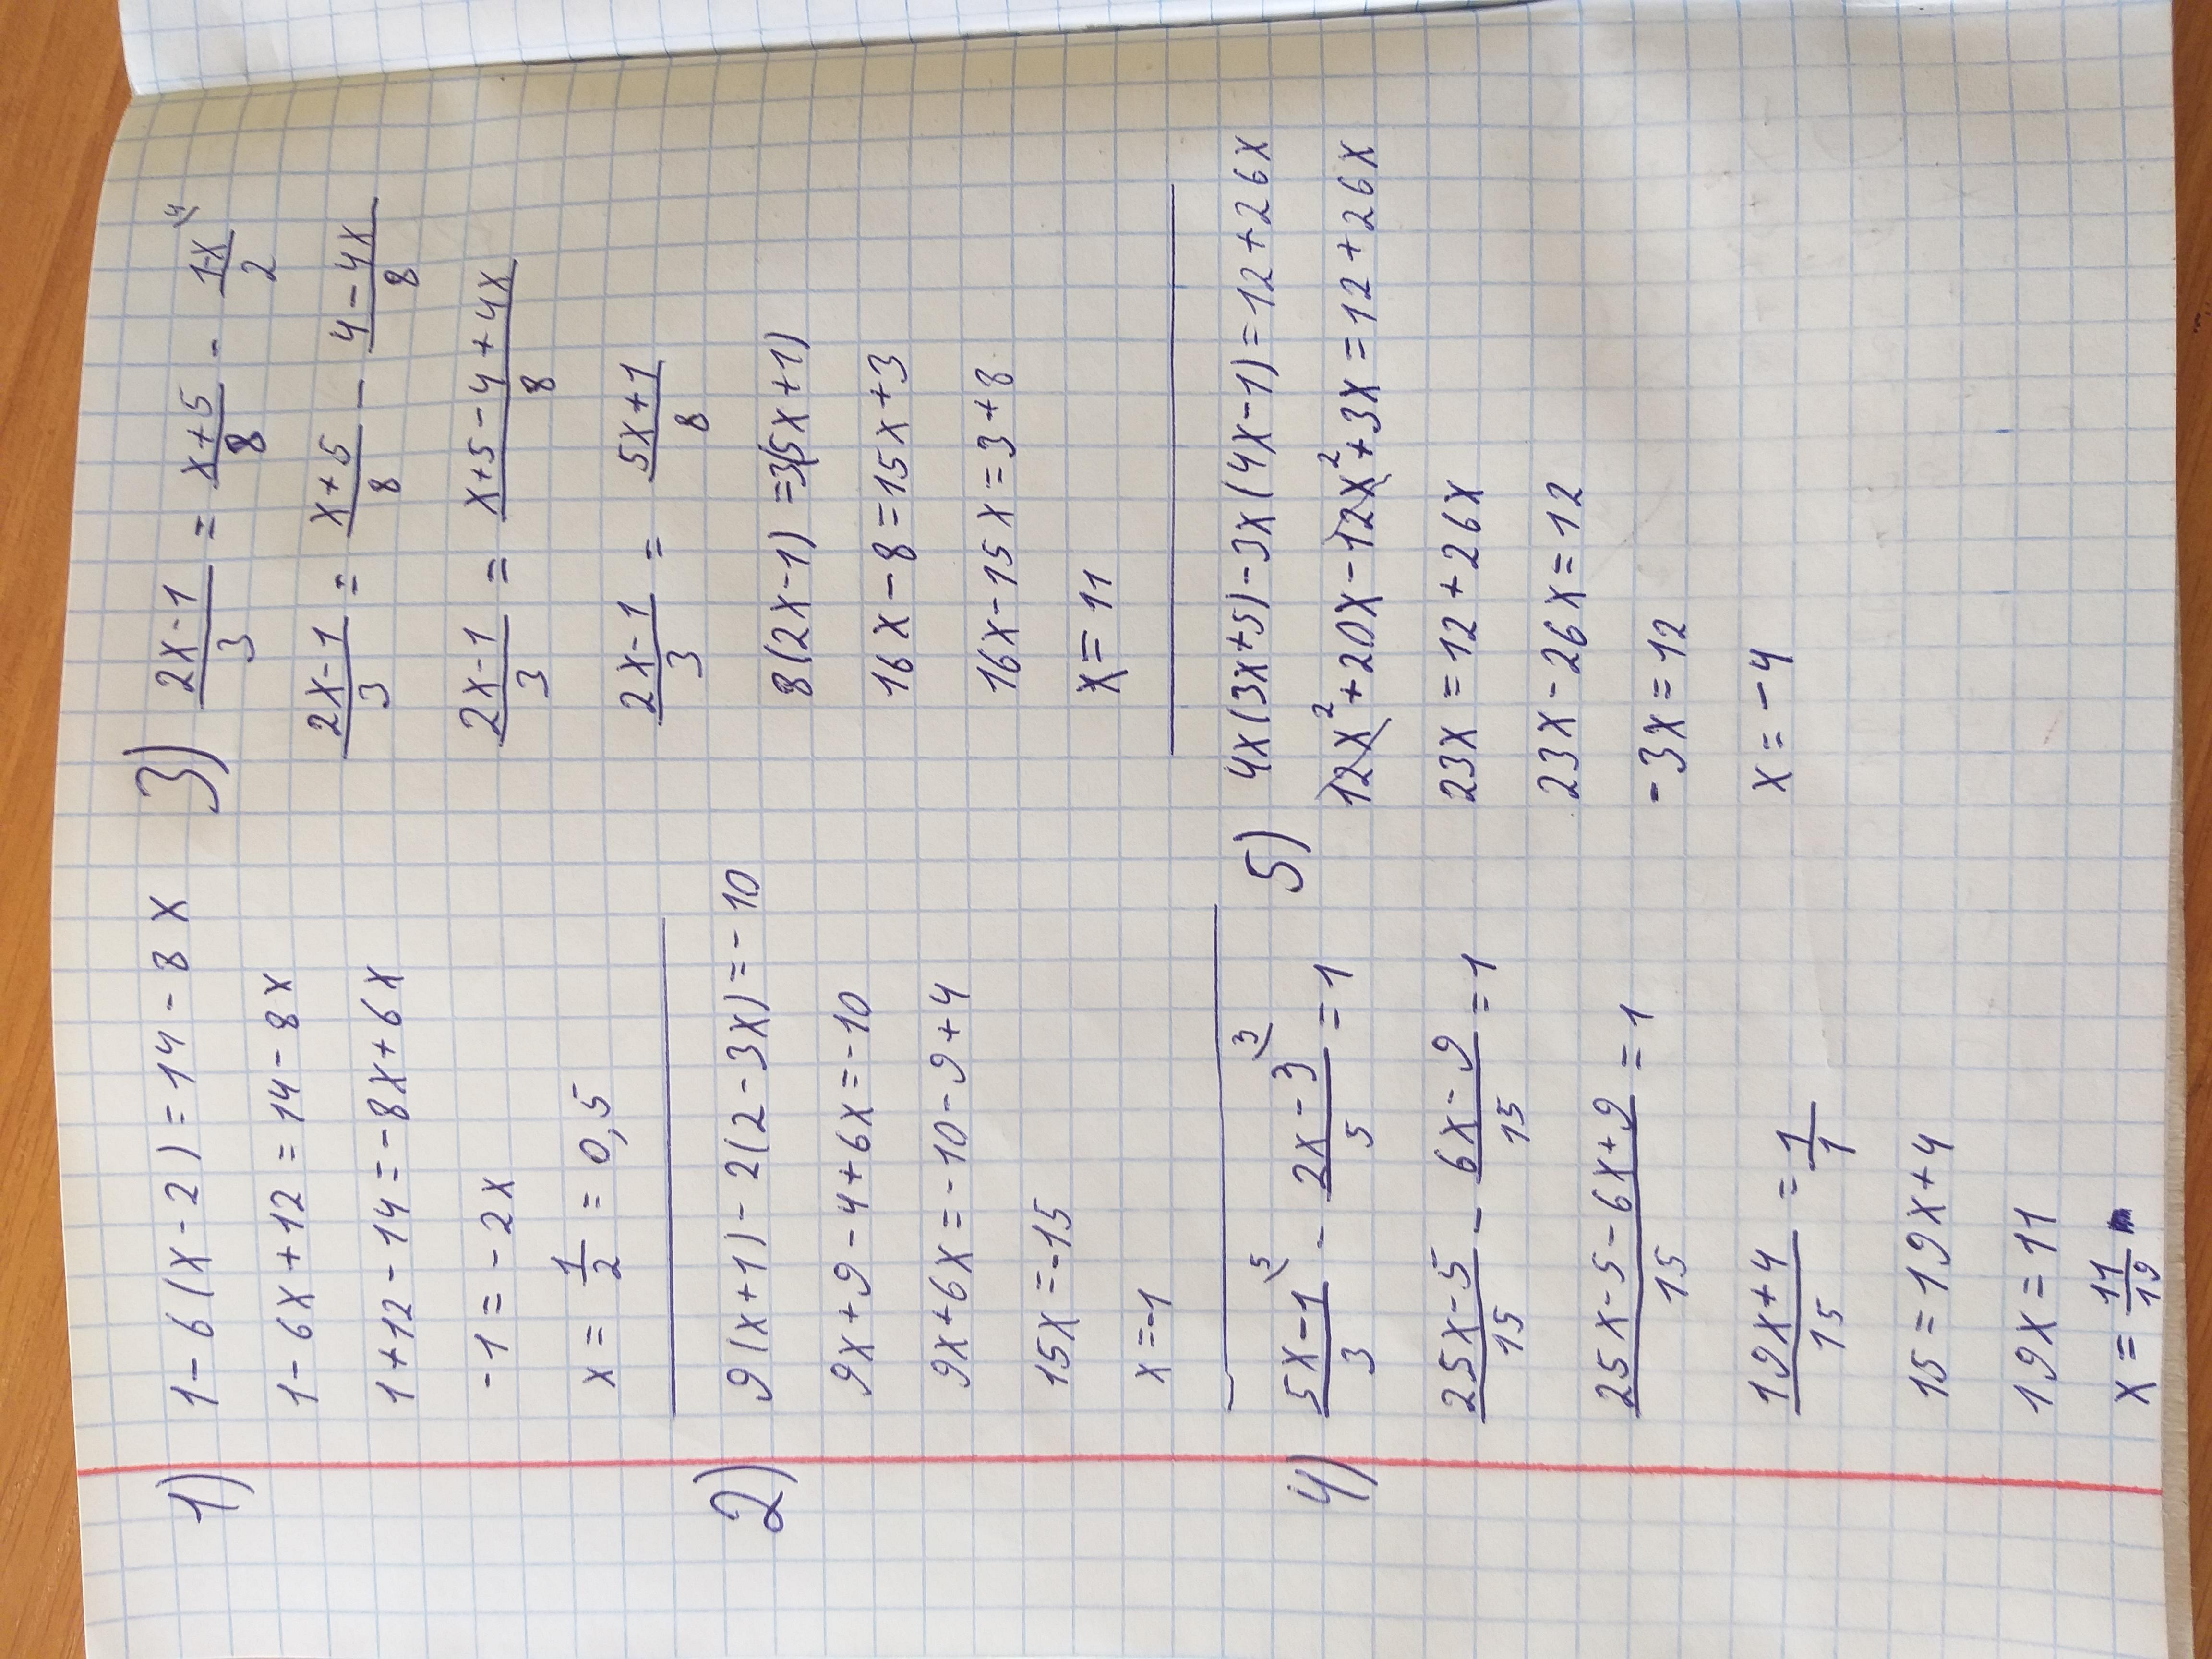 1) 1-6(x-2)=14-8x
1-6x+12=14-8x
1+12-14=-8x+6x
-1=-2x
x=1/2=0,5
2) 9(x+1)-2(2-3x)=-10
9x+9-4+6x=-10
9x+6x=-10-9+4
15x=-15
x=-1
3) (2x-1)/3 = (x+5)/8 - (1-x)/2 \4
(2x-1)/3 = (x+5)/8 - (4-4x)/8
(2x-1)/3 = (x+5-4+4x)/8
(2x-1)/3 = (5x+1)/8
8(2x-1)=3(5x+1)
16x-8=15x+3
16x-15x=3+8
x=11
4) (5x-1)/3 \5 - (2x-3)/5 \3 =1
(25x-5)/15 - (6x-9)/15 =1
(25x-5-6x+9)/15 =1
(19x+4)/15 = 1/1
15=19x+4
19x=11
x=11/19
5) 4x(3x+5)-3x(4x-1)=12+26x
12x²+20x-12x²+3x=12+26x
23x=12+26x
23x-26x=12
-3x=12
x=-4